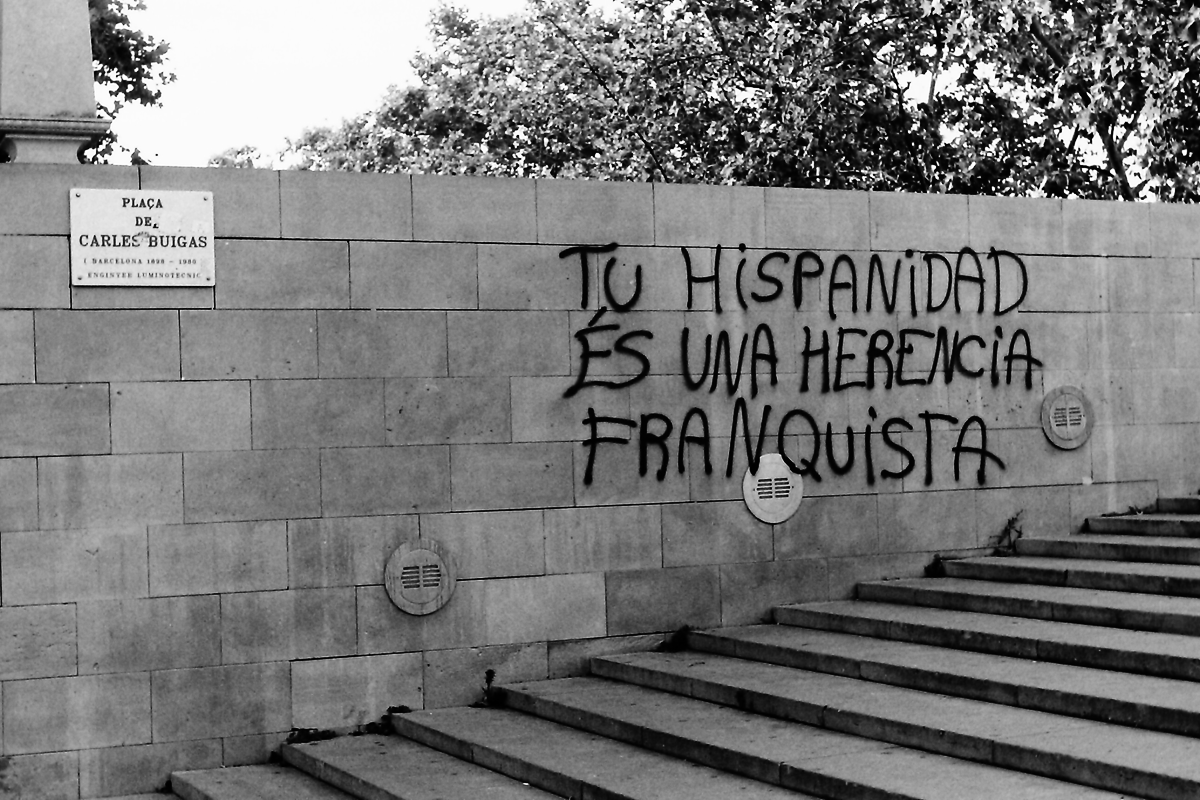 PLAÇA
DE
CARLES BUIGAS
( BARCELONA 1898 - 1980
ENGINYER LUMINOTECNIC
TU HISPANIDAD
ÉS UNA HERENCIA
FRANQUISTA